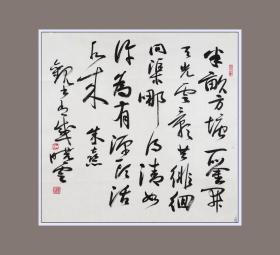 半畝方塘一鑒開
天光雲影共徘徊
問渠哪得清如
許為有源頭活
水來 朱熹
觀書有感